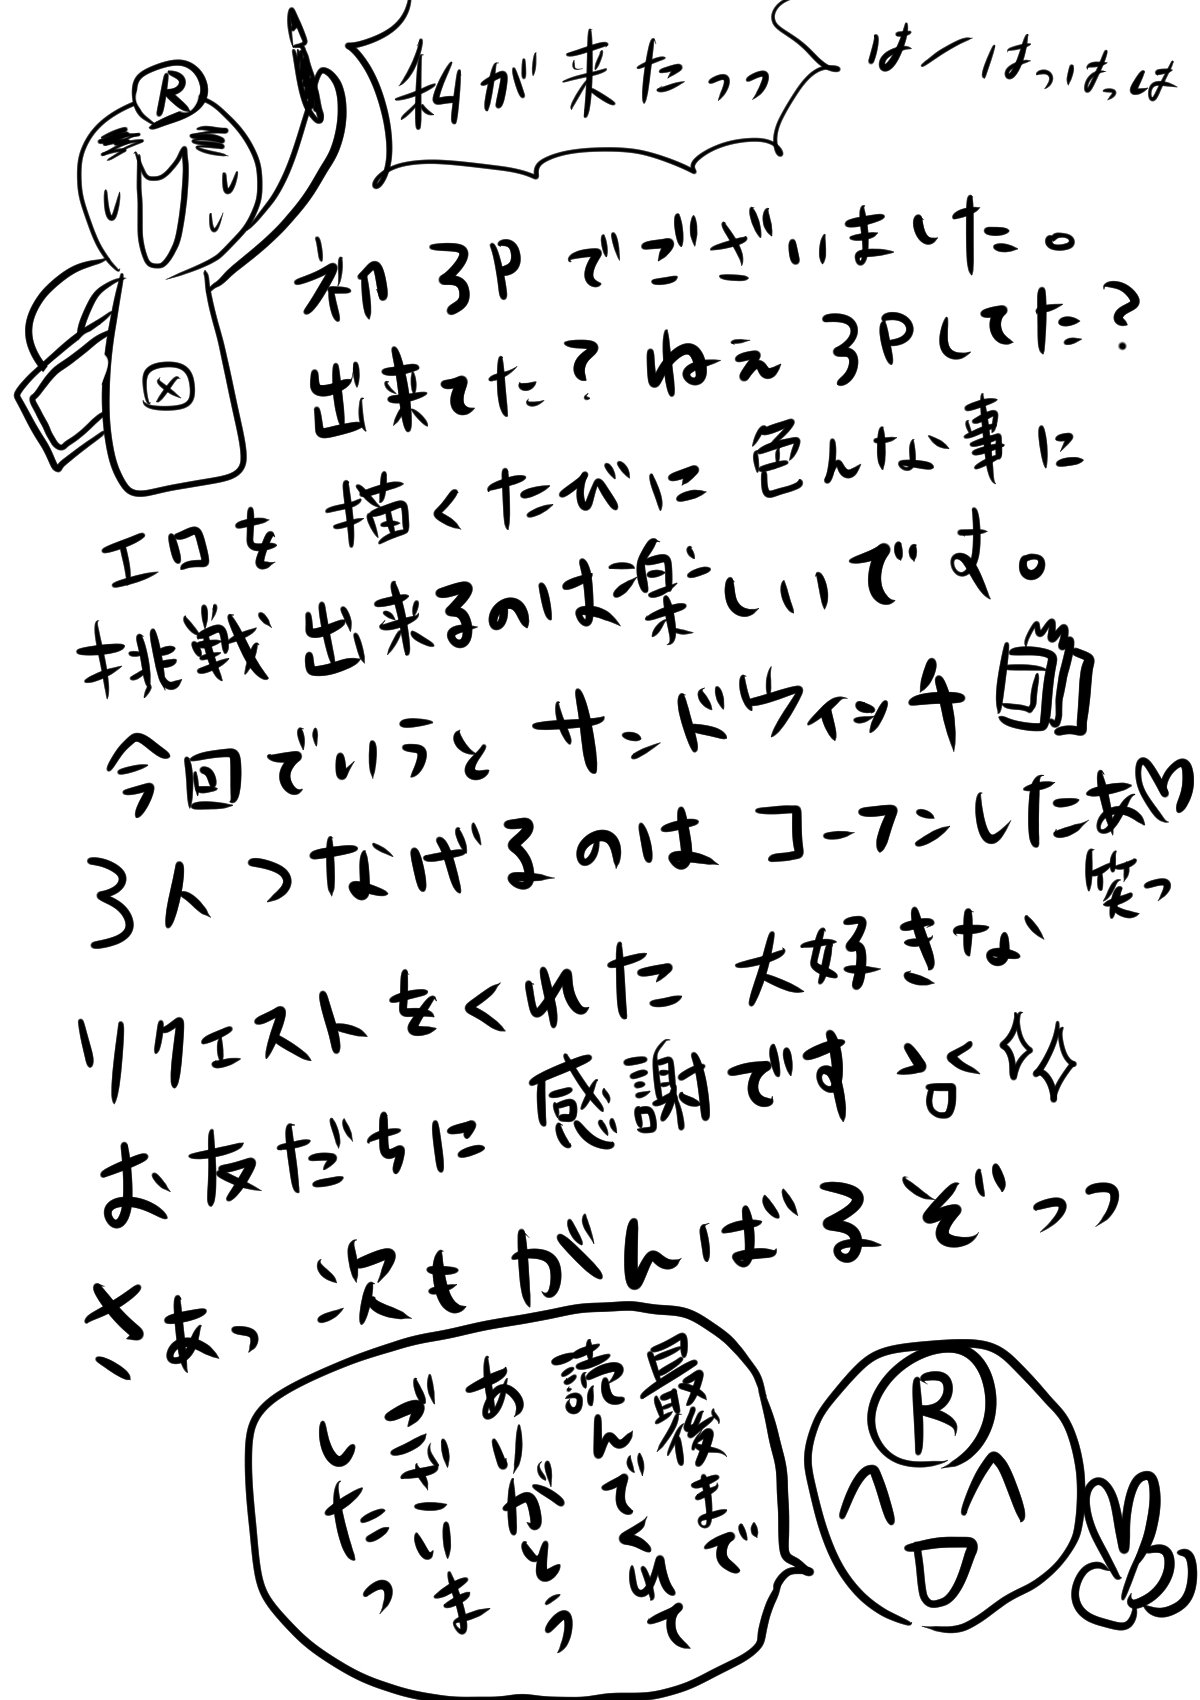 私が来たっっ
はーはっはっは
R
初3Pでございました。
出来てた?ねぇ3Pしてた?
エロを描くたびに色んな事に
挑戦出来るのは楽しいです。
今回でいうとサンドウィッチ
3人つなげるのはコーフンしたぁ♡
笑っ
リクエストをくれた大好きな
お友だちに感謝です
さぁっ次もがんばるぞっっ
最後まで
読んでくれて
ありがとう
ございま
したっ
R